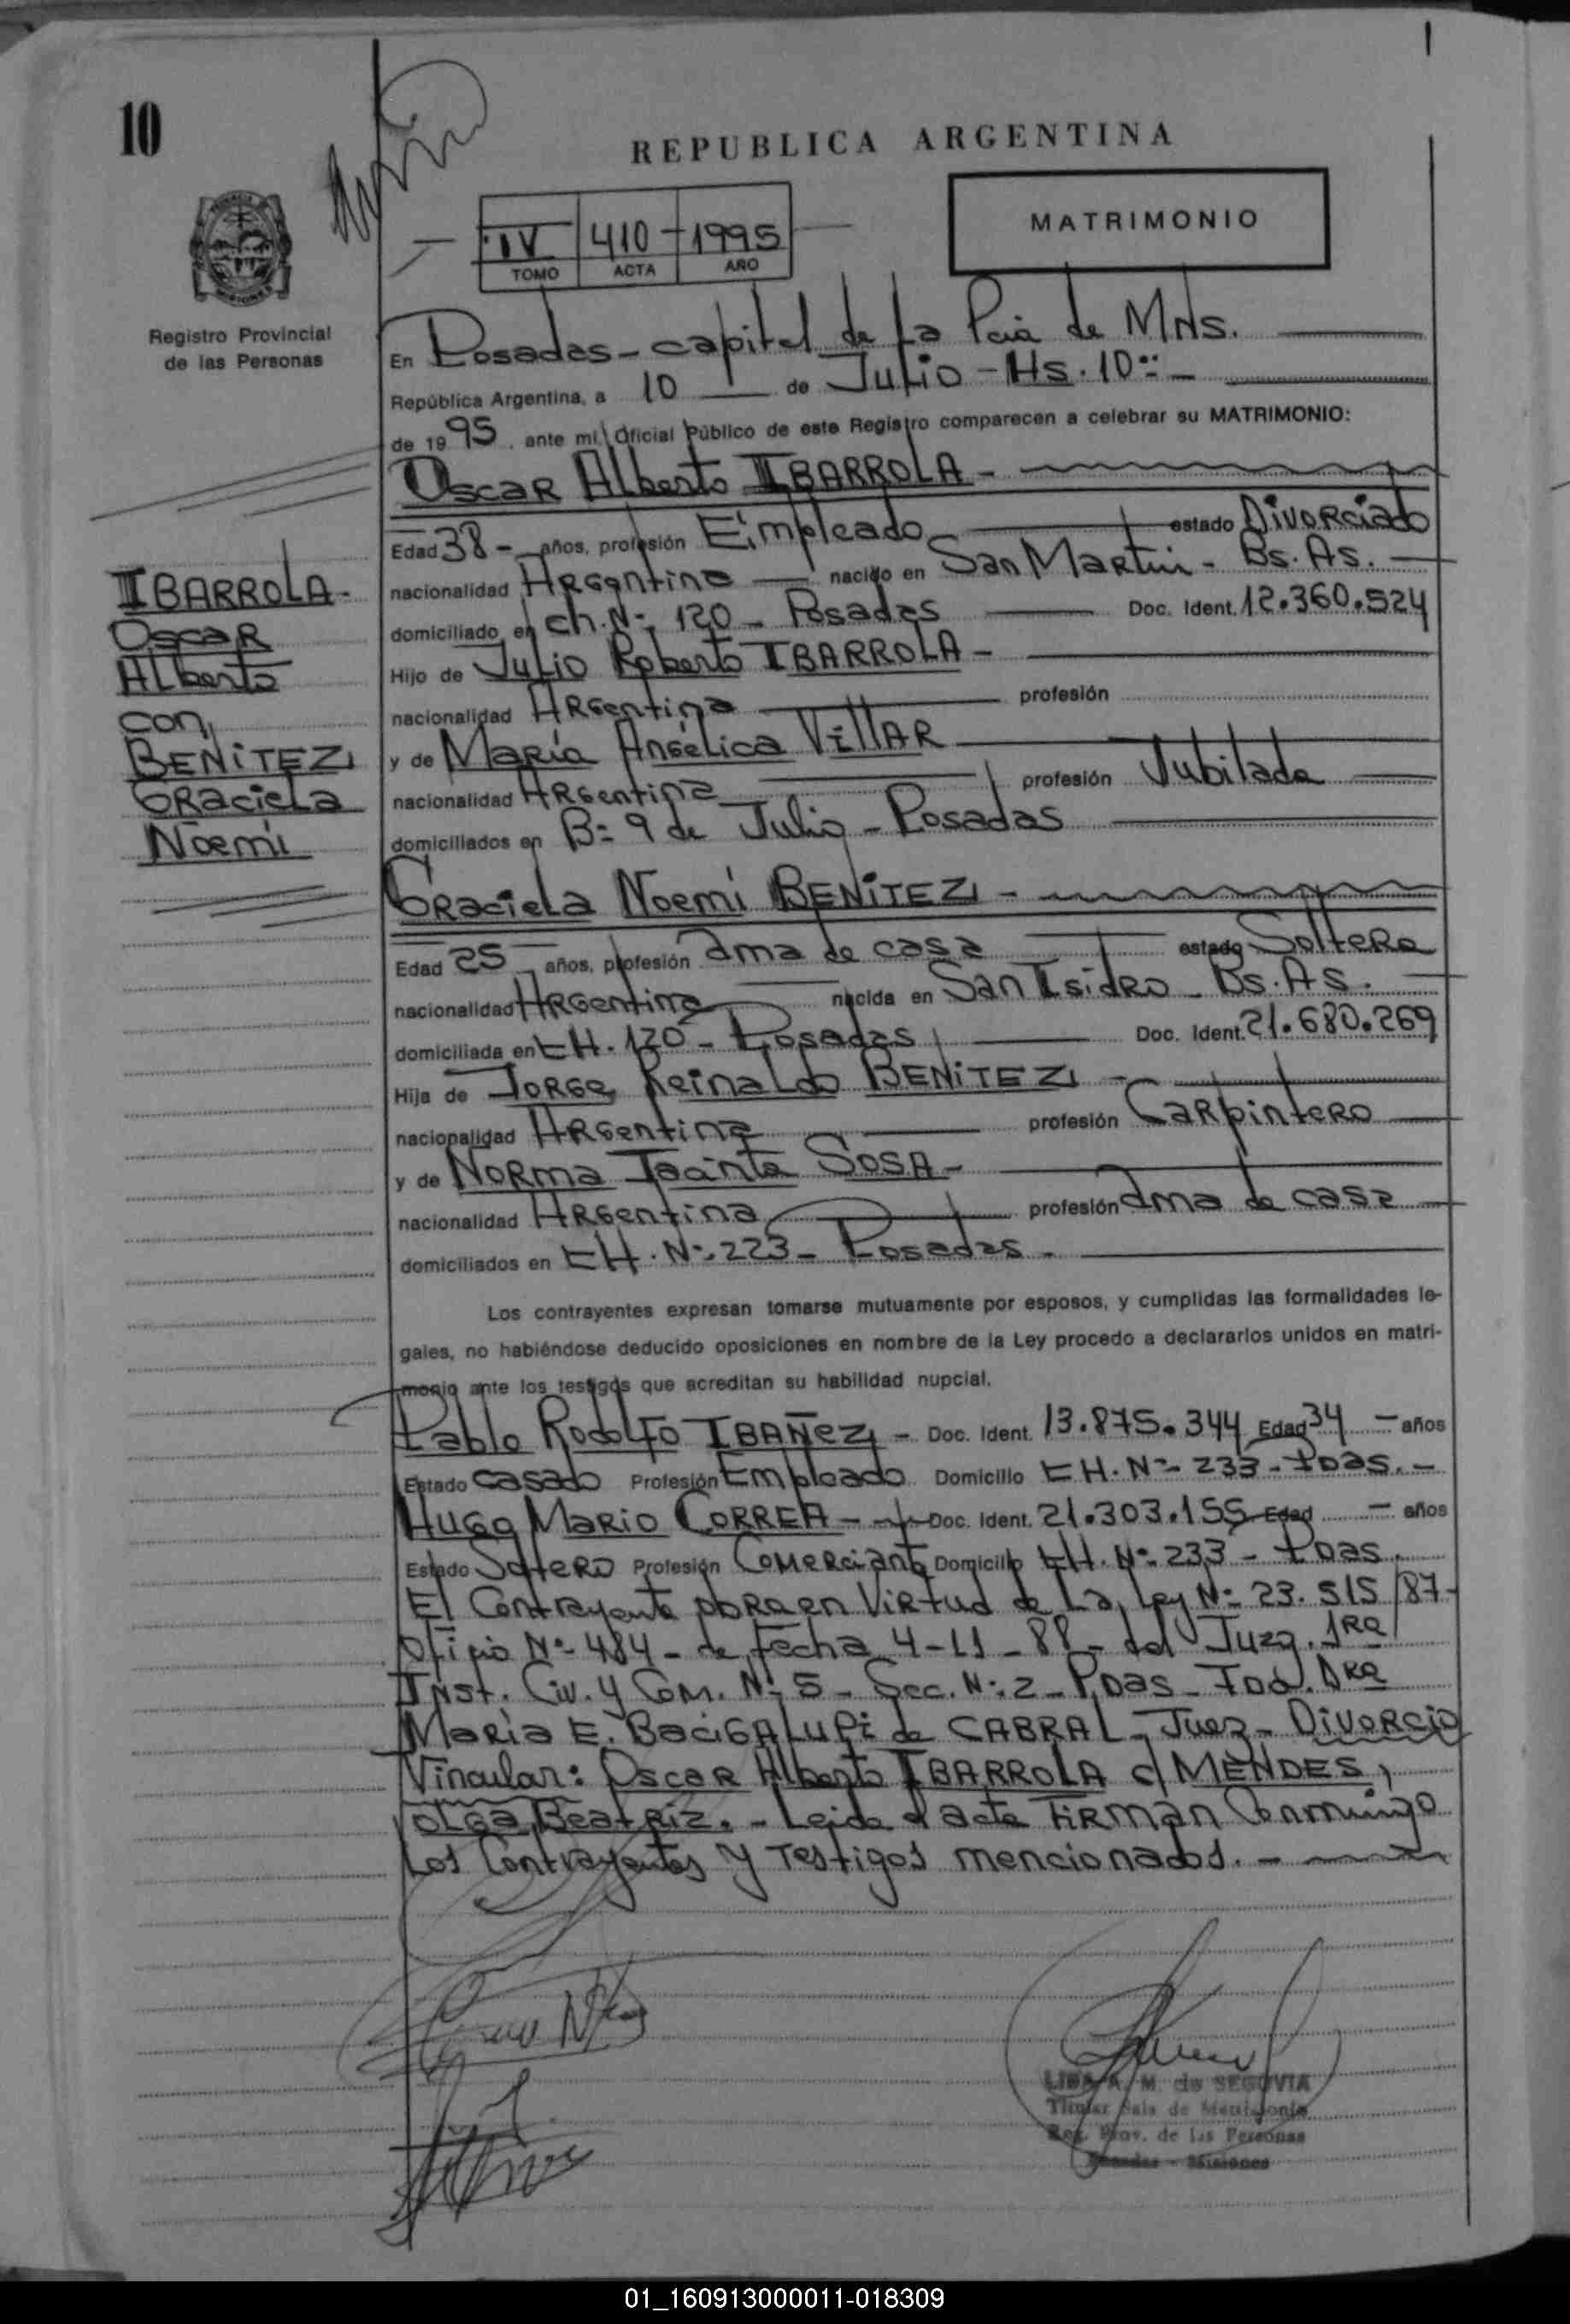 10
REPUBLICA ARGENTINA
IV 410 1995
TOMO ACTA AÑO
MATRIMONIO
Registro Provincial
de las Personas
En Posadas - capital de la Pcia de Mns.
República Argentina, a 10 de Julio - Hs. 10
de 1995, ante mí, Oficial Público de este Registro comparecen a celebrar su MATRIMONIO:
Oscar Alberto IBARROLA -
Edad 38 - años, profesión Empleado estado Divorciado
nacionalidad Argentina nacido en San Martin - Bs. As.
domiciliado en ch. Nº 120 - Posadas Doc. Ident. 12.360.524
Hijo de Julio Roberto IBARROLA -
nacionalidad Argentina profesión
y de María Angélica VillAR
nacionalidad Argentina profesión Jubilada
domiciliados en Bº 9 de Julio - Posadas
IBARROLA -
Oscar
Alberto
con
BENITEZ
Graciela
Noemí
Graciela Noemí BENITEZ -
Edad 25 años, profesión ama de casa estado Soltera
nacionalidad Argentina nacida en San Isidro - Bs. As.
domiciliada en CH. 120 - Posadas Doc. Ident. 21.680.269
Hija de Jorge Reinaldo BENITEZ -
nacionalidad Argentina profesión Carpintero
y de Norma Jacinta SOSA -
nacionalidad Argentina profesión ama de casa
domiciliados en CH. Nº 223 - Posadas -
Los contrayentes expresan tomarse mutuamente por esposos, y cumplidas las formalidades le-
gales, no habiéndose deducido oposiciones en nombre de la Ley procedo a declararlos unidos en matri-
monio ante los testigos que acreditan su habilidad nupcial.
Pablo Rodolfo IBAÑEZ - Doc. Ident. 13.875.344 Edad 34 - años
Estado casado Profesión Empleado Domicilio CH. Nº 233 - Pdas. -
Hugo Mario CORREA - Doc. Ident. 21.303.155 Edad - años
Estado Soltero Profesión Comerciante Domicilio CH. Nº 233 - Pdas.
El Contrayente obra en virtud de la Ley Nº 23.515/87 -
Oficio Nº 484 - de fecha 4-11-88 - del Juzg. 1ra
Inst. Civ. y Com. Nº 5 - Sec. Nº 2 - Pdas - Fdo. Dra
María E. Bacigalupi de CABRAL - Juez - Divorcio
Vincular: Oscar Alberto IBARROLA c/ MENDES,
Olga Beatriz. - Leida el acta firman conmigo
los contrayentes y testigos mencionados. -
A. M. de SEGOVIA
Titular Sala de Matrimonio
Reg. Prov. de las Personas
Posadas - Misiones
01_160913000011-018309